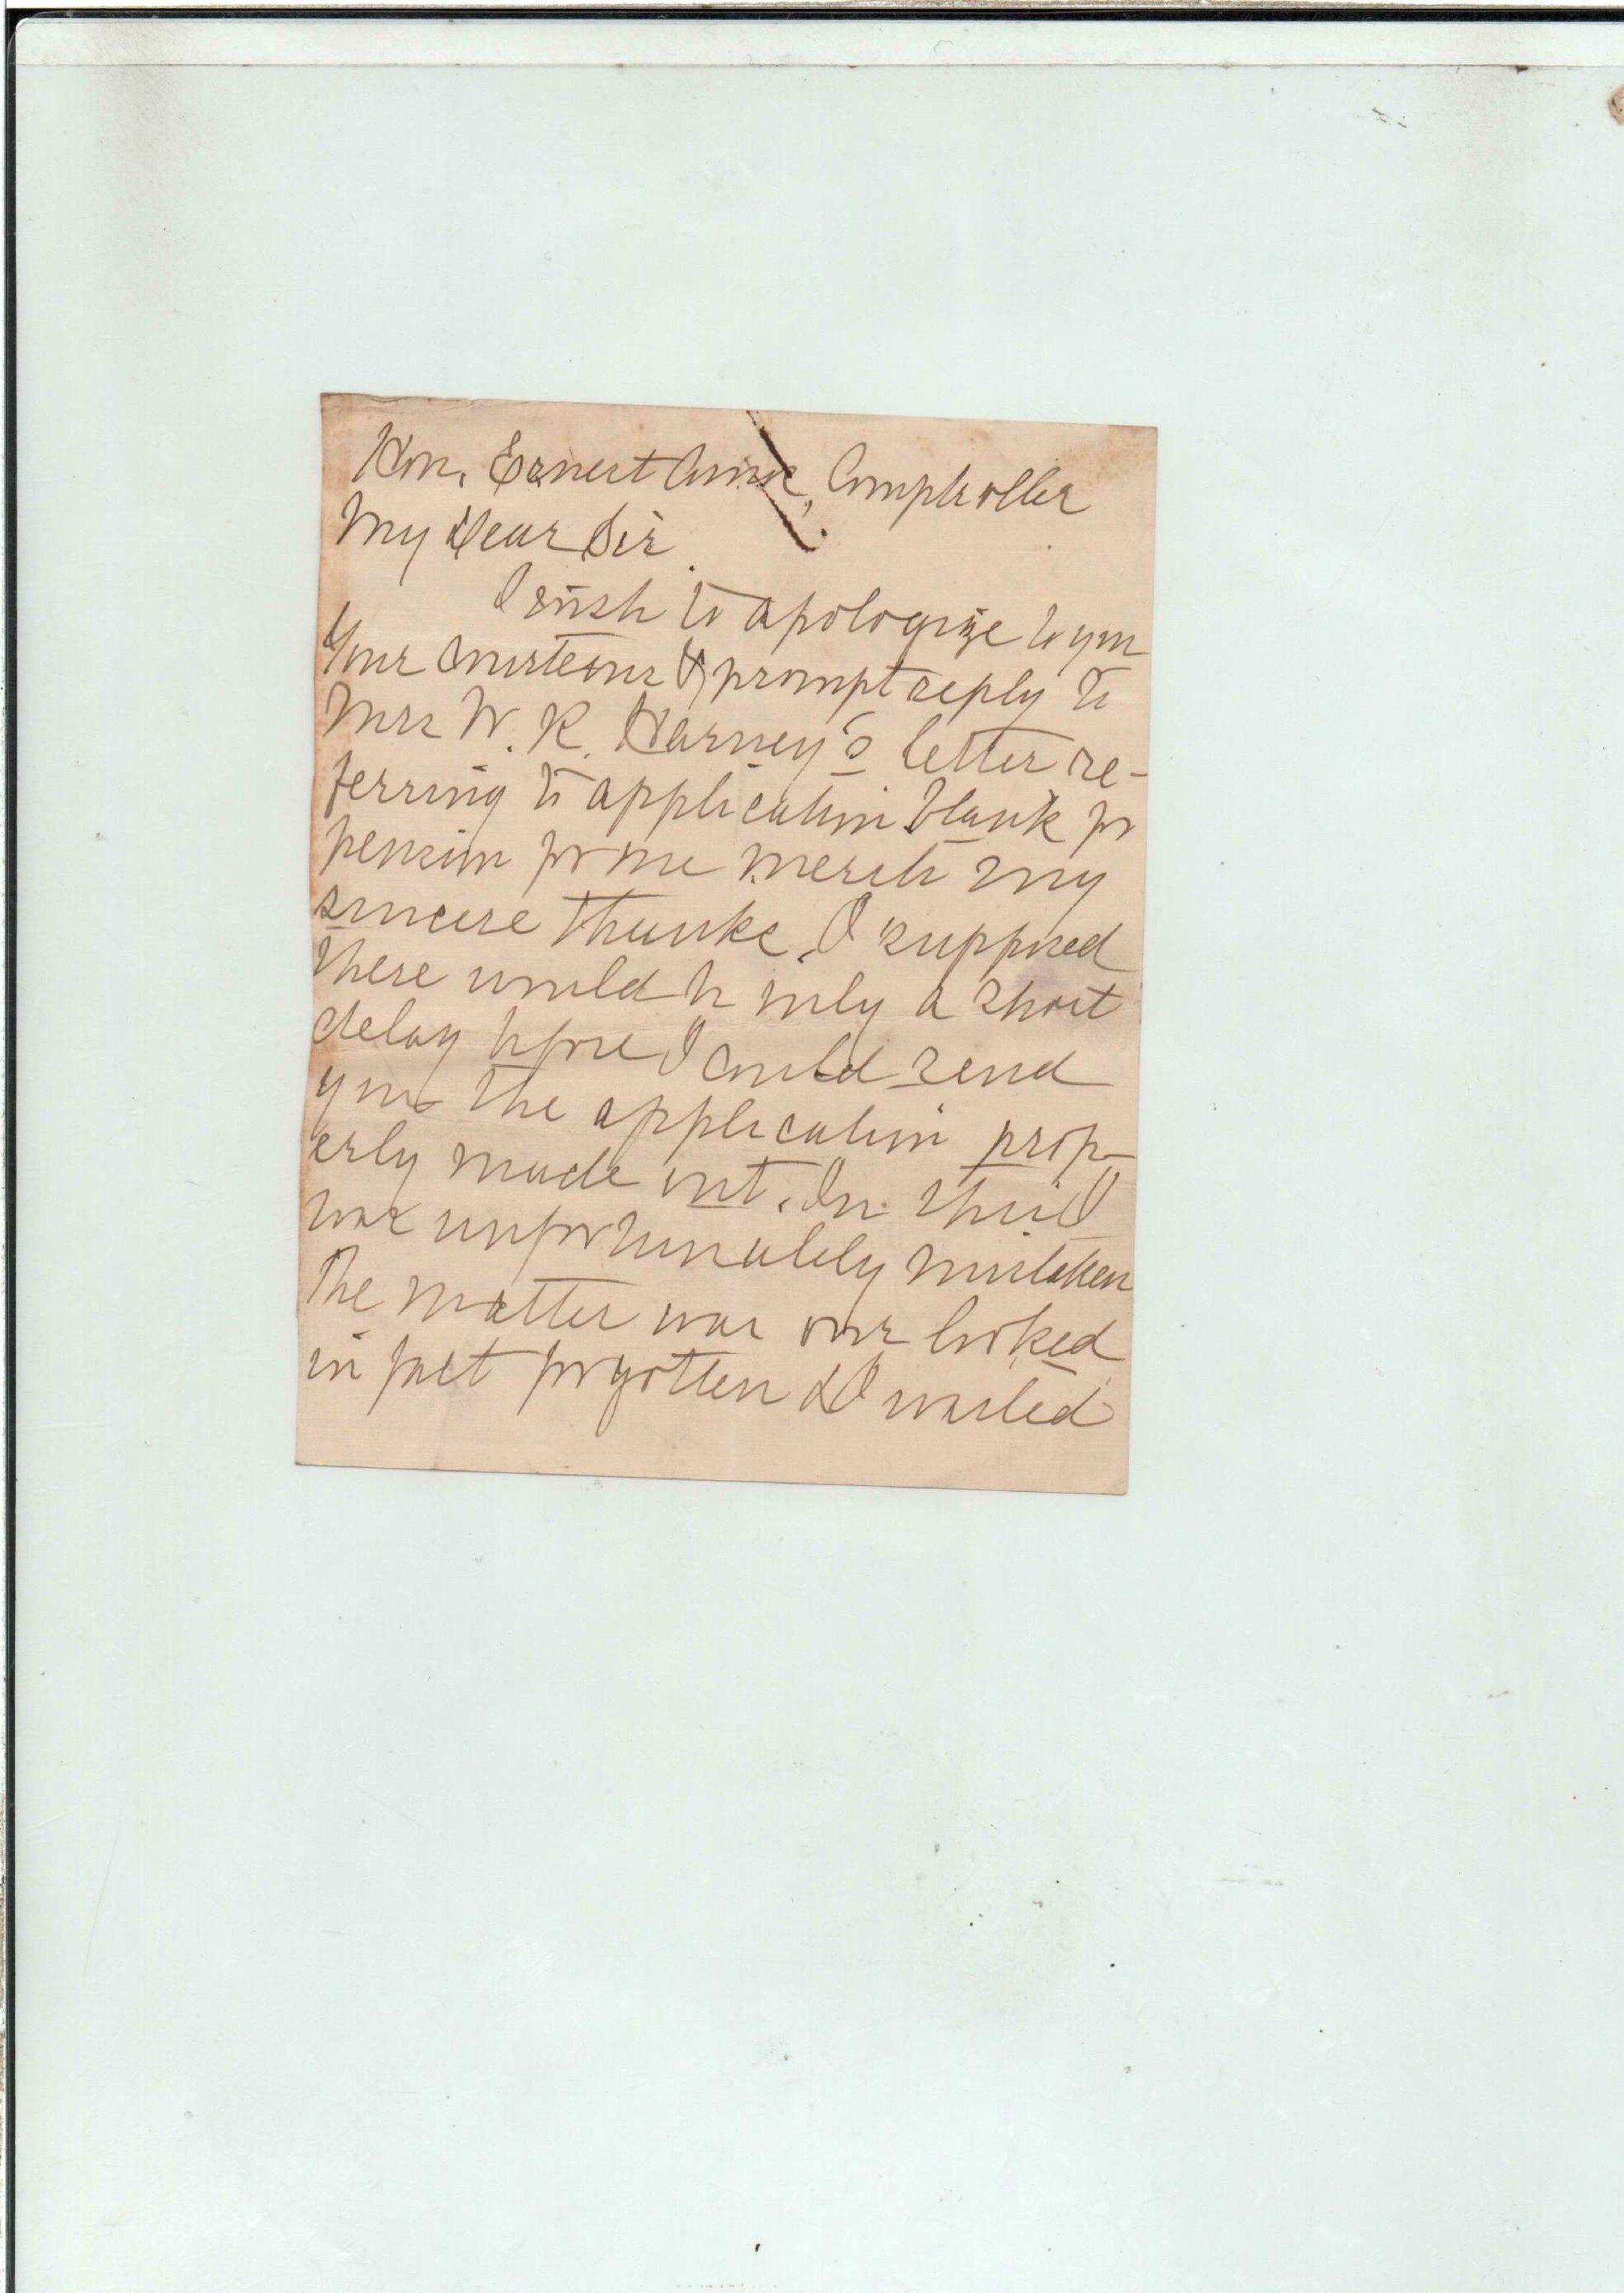 Hon. Ernest Amos, Comptroller
My Dear Sir.
I wish to apologize to you
Your courteous & prompt reply to
Mrs W. K. Harney's letter re-
ferring to application blank for
pension for me merits my
sincere thanks. I supposed
there would be only a short
delay before I could send
you the application prop-
erly made out. In this I
was unfortunately mistaken
The matter was over looked
in fact forgotten & I waited